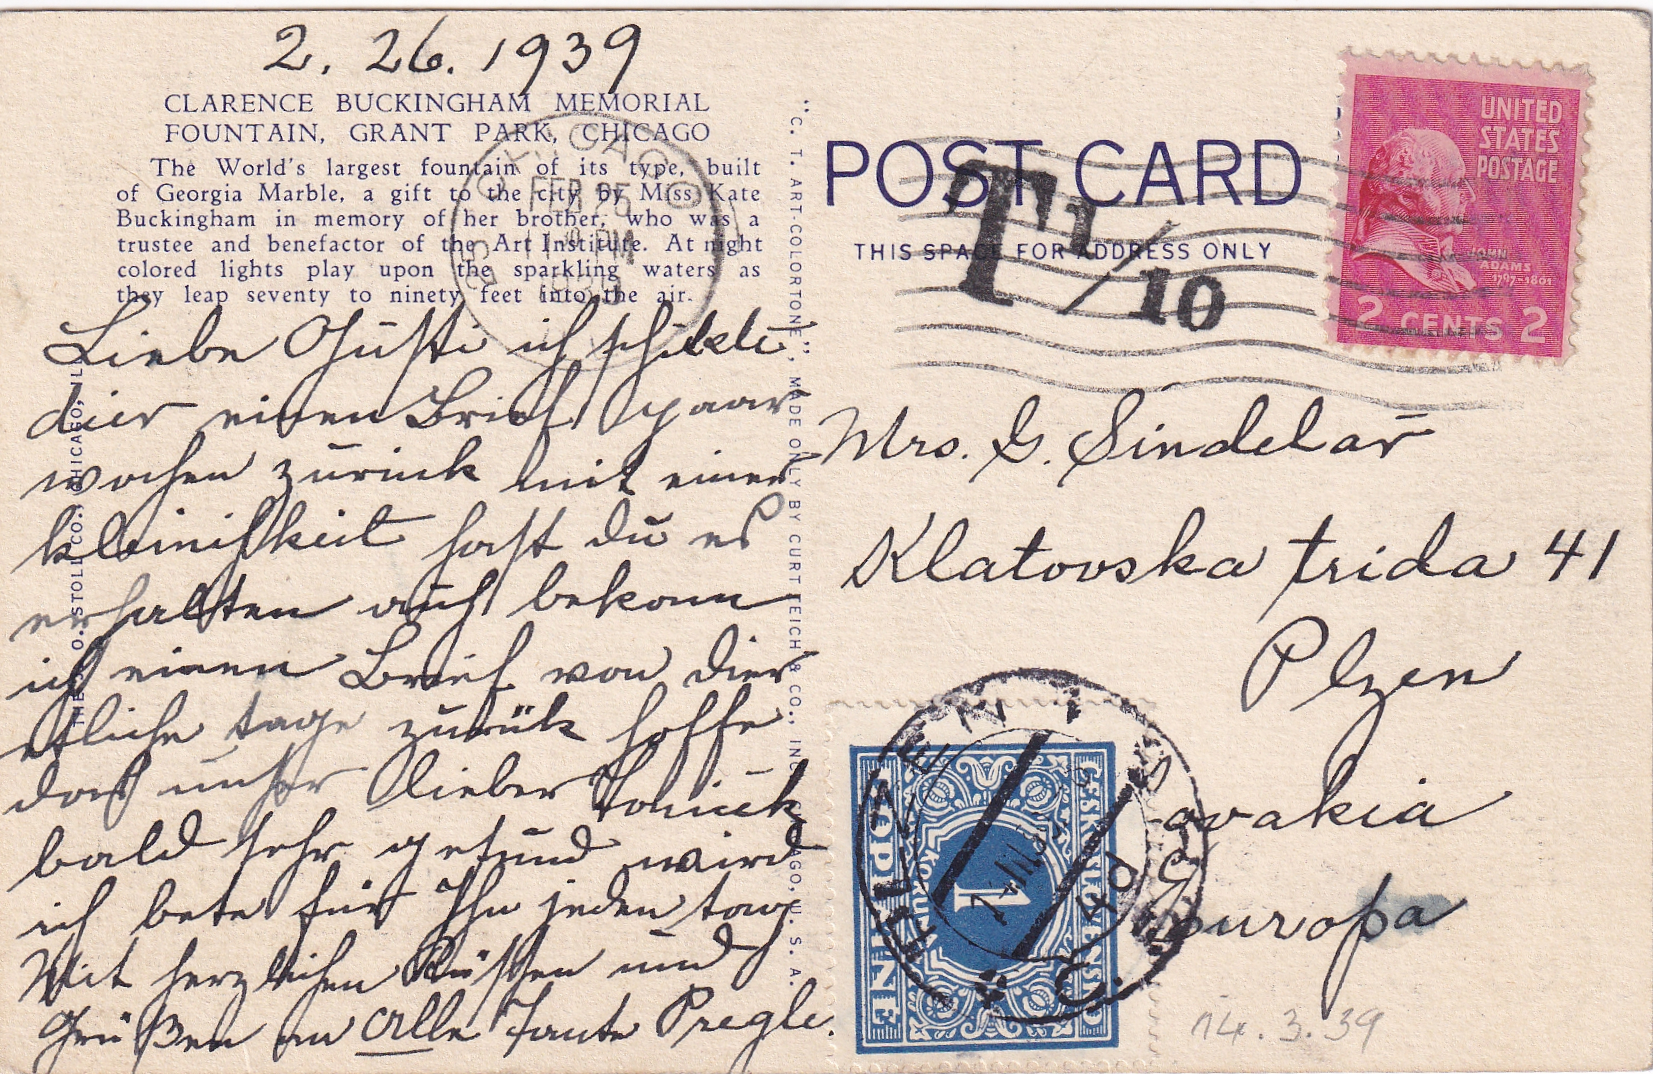 2. 26. 1939
CLARENCE BUCKINGHAM MEMORIAL
FOUNTAIN, GRANT PARK, CHICAGO
The World's largest fountain of its type, built
of Georgia Marble, a gift to the city by Miss Kate
Buckingham in memory of her brother, who was a
trustee and benefactor of the Art Institute. At night
colored lights play upon the sparkling waters as
they leap seventy to ninety feet into the air.
Liebe Gusti ich schikte
dier einen Brief paar
wochen zurück mit einer
kleinigkeit hast du es
erhalten auch bekomm
ich einen Brief von dier
etliche tage zurük hoffe
das unser lieber Toniček
bald sehr gesund wird
ich bete für Ihn jeden tag
Mit herzlichen Küssen und
Grüßen an Alle Tante Pregle.
O. STOLL CO., CHICAGO, ILL.
"C. T. ART-COLORTONE", MADE ONLY BY CURT TEICH & CO., INC., CHICAGO, U. S. A.
CHICAGO
FEB
PM
POST CARD
THIS SPACE FOR ADDRESS ONLY
T 1/10
UNITED
STATES
POSTAGE
JOHN
ADAMS
1797-1801
2 CENTS 2
Mrs. G. Sindelař
Klatovska trida 41
Plzen
Europa
ČESKOSLOVENSKO
DOPLATNÉ
1
KORUNA
PLZEŇ 1
14. 3. 39